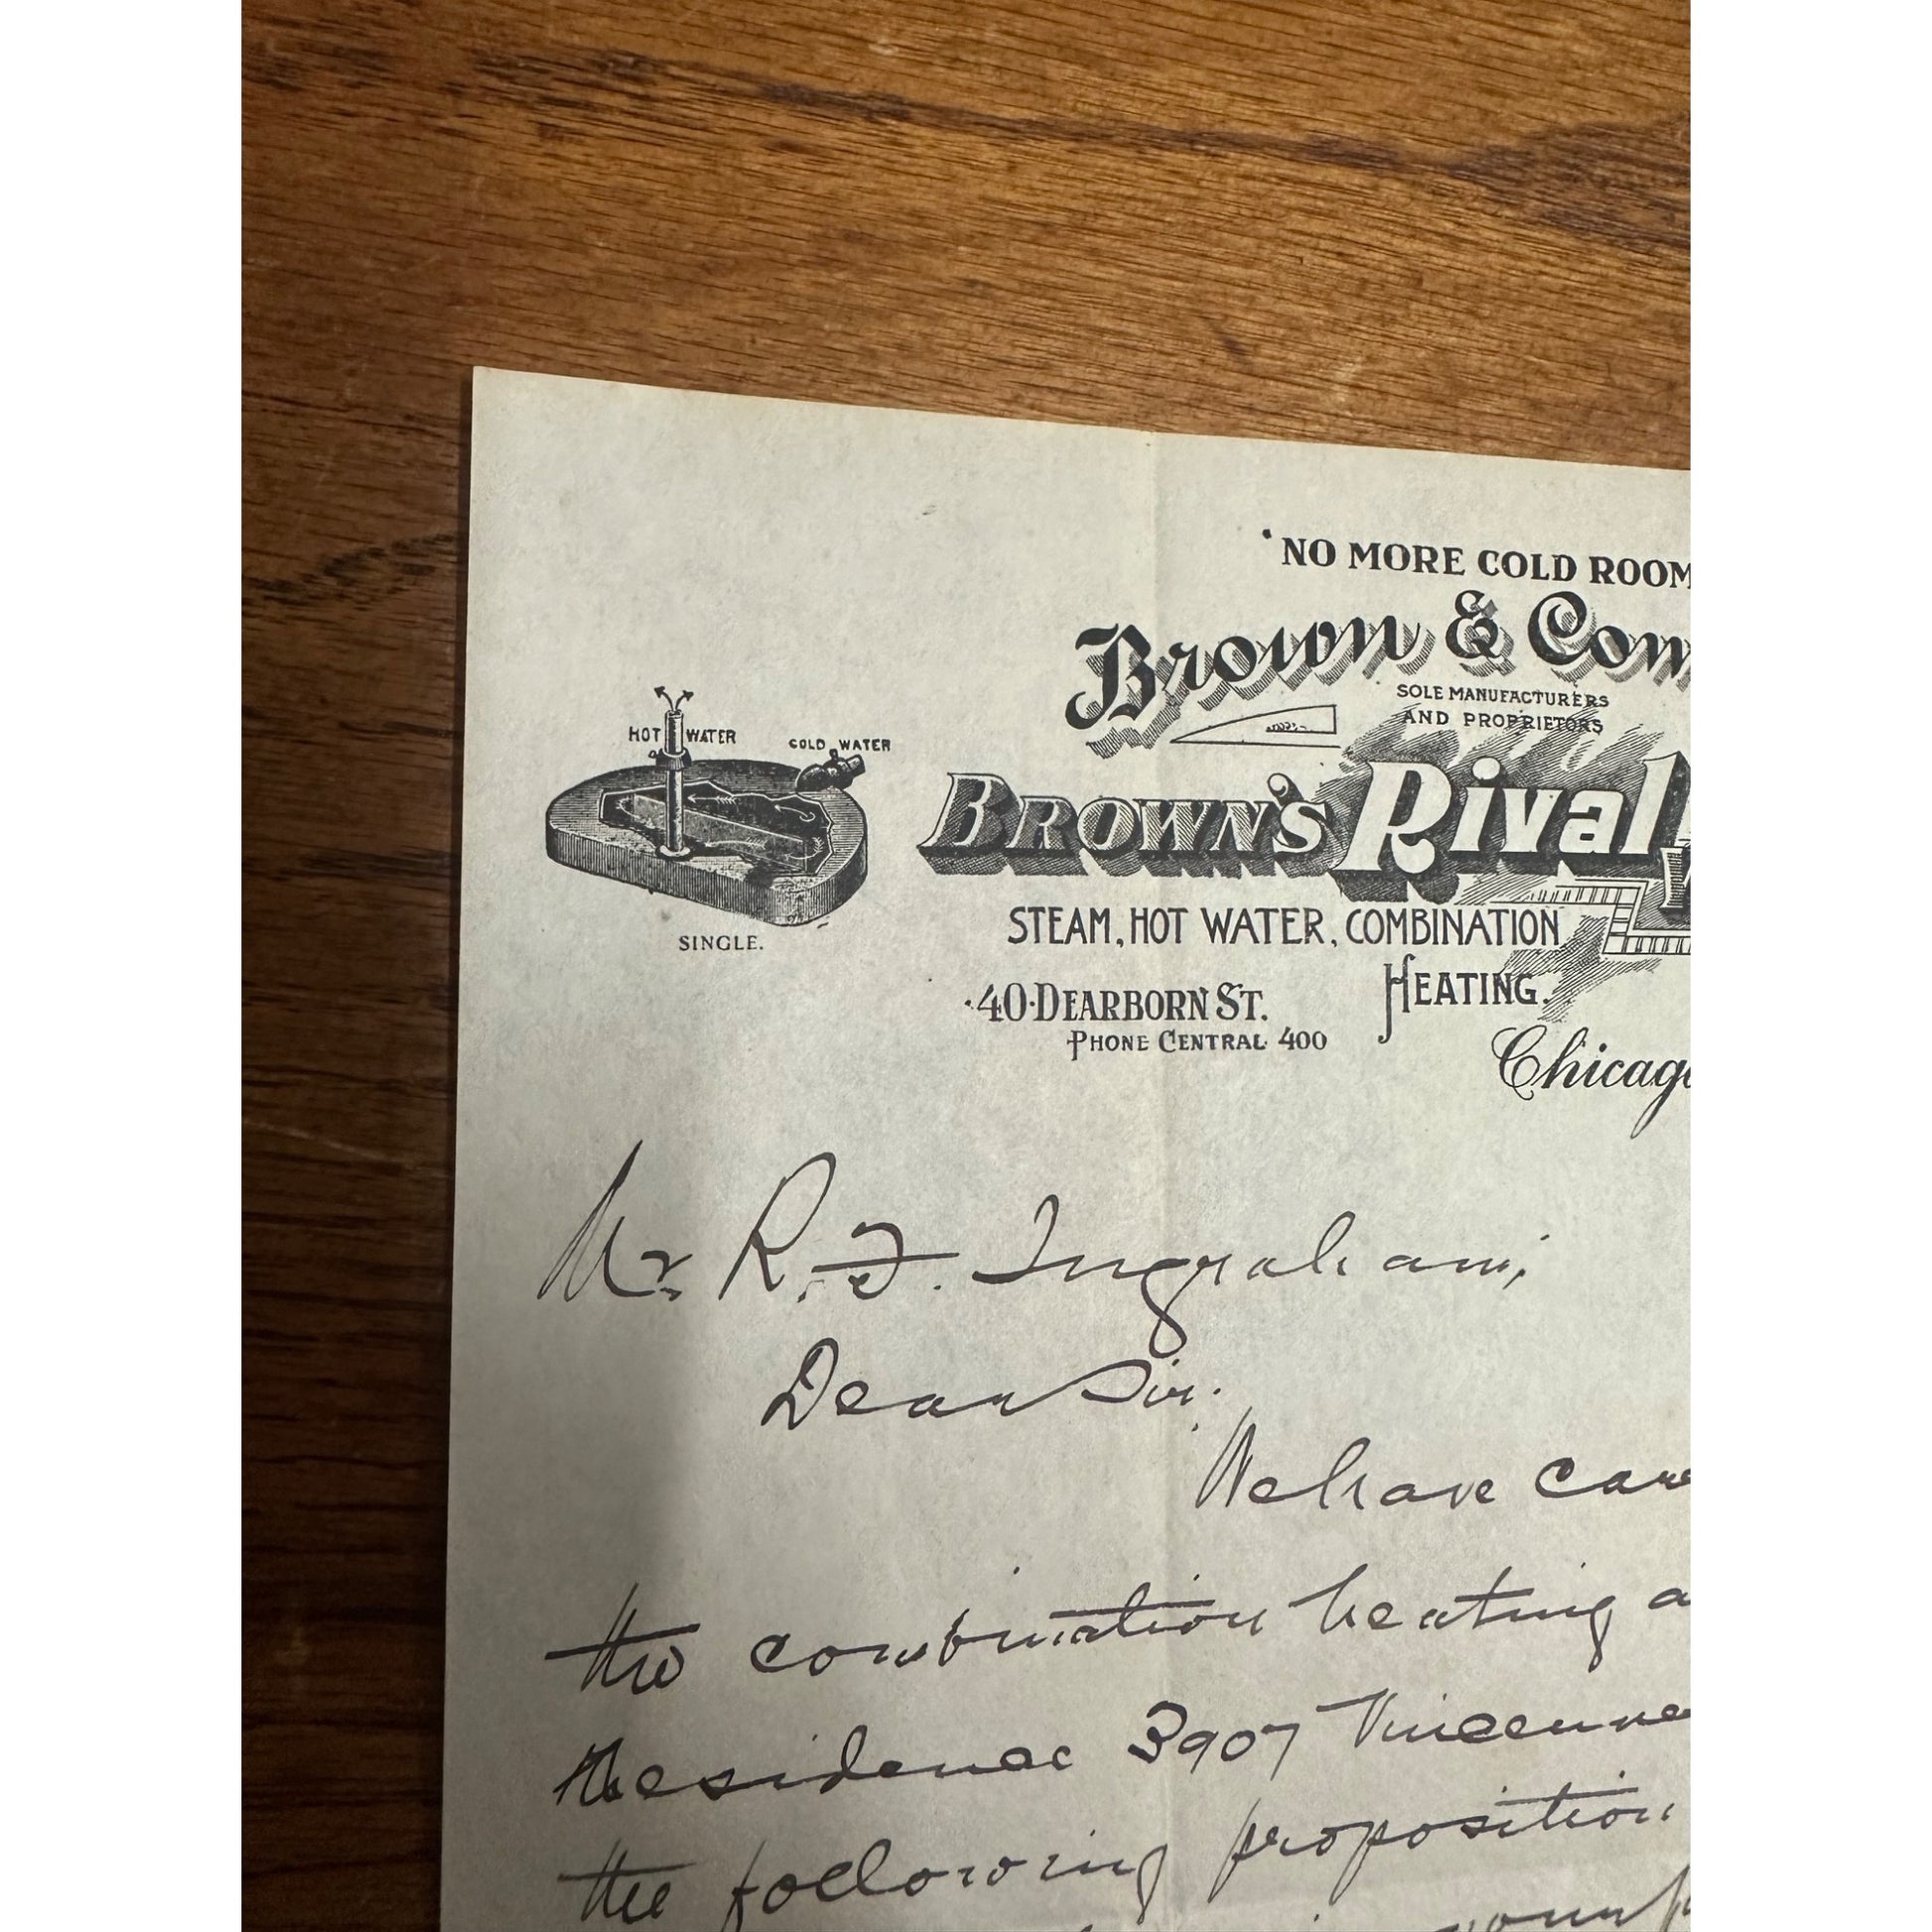 "NO MORE COLD ROOM
Brown & Com
SOLE MANUFACTURERS
AND PROPRIETORS
HOT WATER
COLD WATER
BROWN'S Rival
SINGLE.
STEAM, HOT WATER, COMBINATION
HEATING.
40 DEARBORN ST.
PHONE CENTRAL 400
Chicago
Mr R. F. Ingraham,
Dear Sir.
We have care
the combination heating a
Residence 3907 Vincenne
the following proposition
your